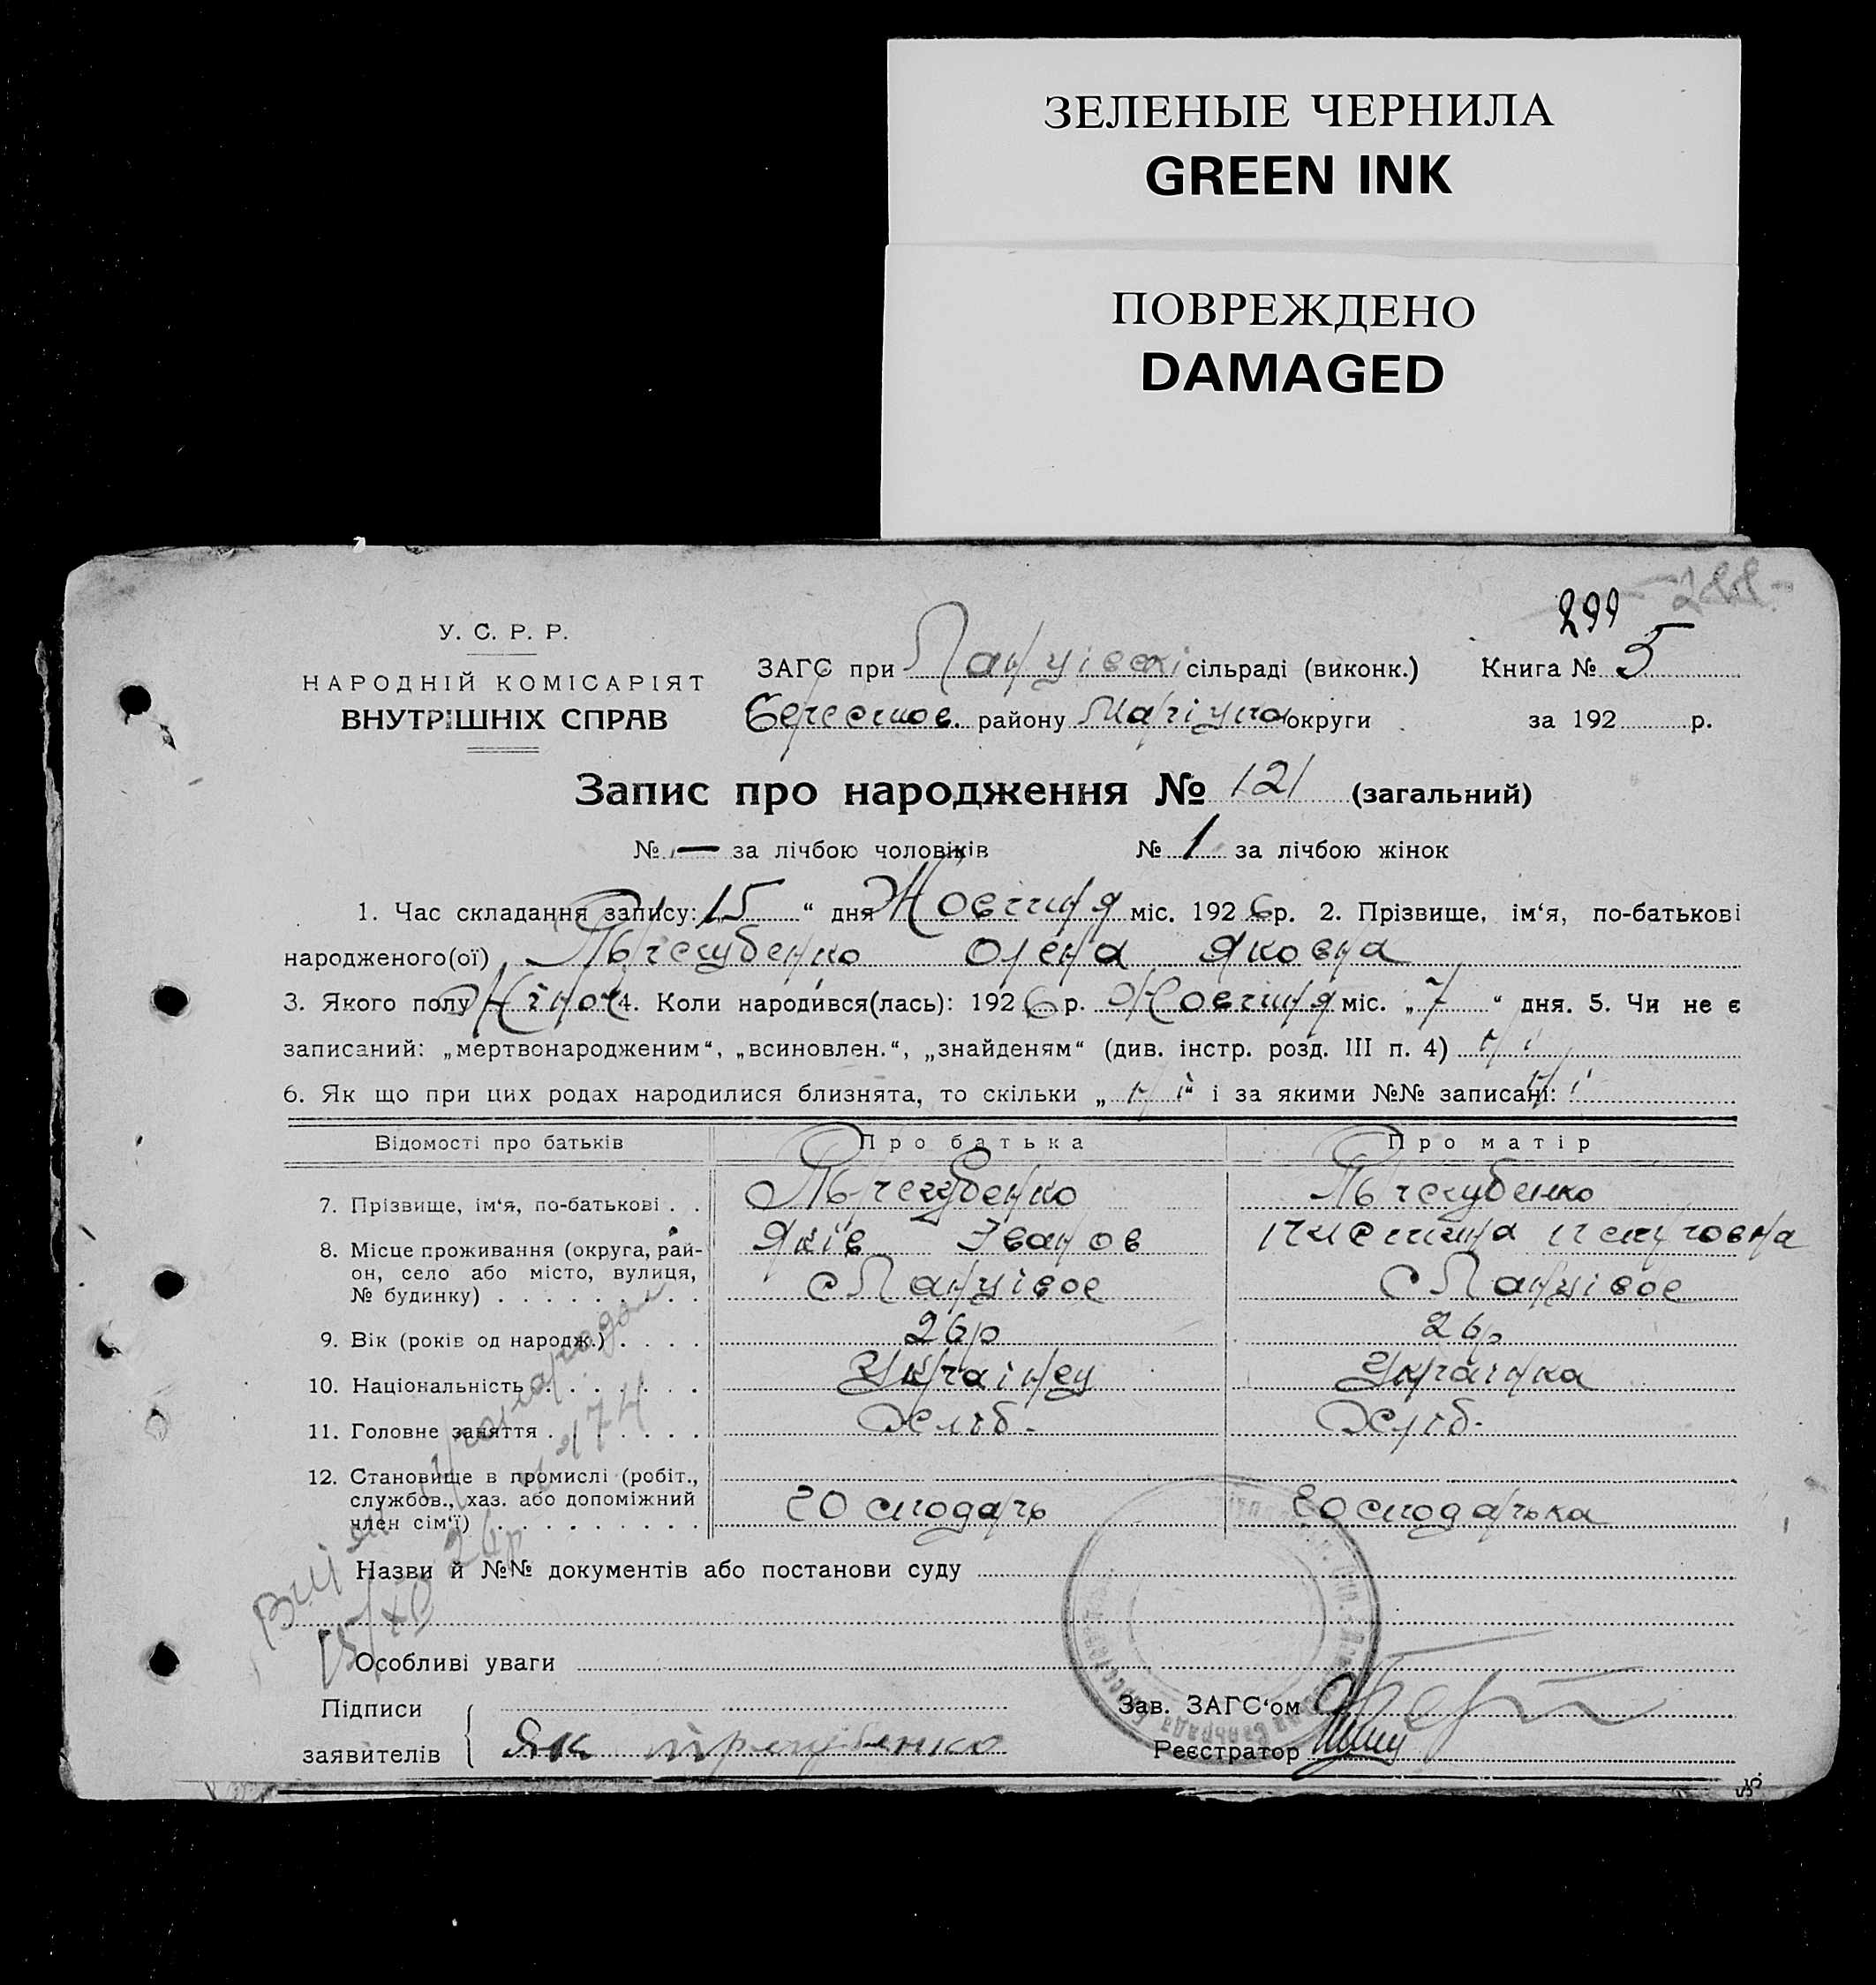 ЗЕЛЕНЫЕ ЧЕРНИЛА
GREEN INK
ПОВРЕЖДЕНО
DAMAGED
299
У. С. Р. Р.
НАРОДНІЙ КОМІСАРІЯТ
ВНУТРІШНІХ СПРАВ
ЗАГС при сільраді (виконк.) Книга № 5
Берестов. району Маріуп округи за 192 р.
Запис про народження № 121 (загальний)
№ — за лічбою чоловіків № 1 за лічбою жінок
1. Час складання запису: „15“ дня Жовтня міс. 1926 р. 2. Прізвище, ім‘я, по-батькові
народженого(ої) Олена Яковна
3. Якого полу Жіноч 4. Коли народився(лась): 1926 р. Жовтня міс. „7“ дня. 5. Чи не є
записаний: „мертвонародженим“, „всиновлен.“, „знайденям“ (див. інстр. розд. III п. 4) ні
6. Як що при цих родах народилися близнята, то скільки „ні“ і за якими №№ записані: ні
Відомості про батьків Про батька Про матір
7. Прізвище, ім‘я, по-батькові . .
Яків Іванов
8. Місце проживання (округа, рай-
он, село або місто, вулиця,
№ будинку) . . . . . . . . .
9. Вік (років од народж.) . . . . 26 р 26 р
10. Національність . . . . . . Українец Українка
11. Головне заняття . . . . . . . Хліб. Хліб.
12. Становище в промислі (робіт.,
службов., хаз. або допоміжний
член сім‘ї) . . . . . . . . . господарь господарька
Назви й №№ документів або постанови суду
Особливі уваги
Підписи
заявителів Як
Зав. ЗАГС‘ом
Реєстратор